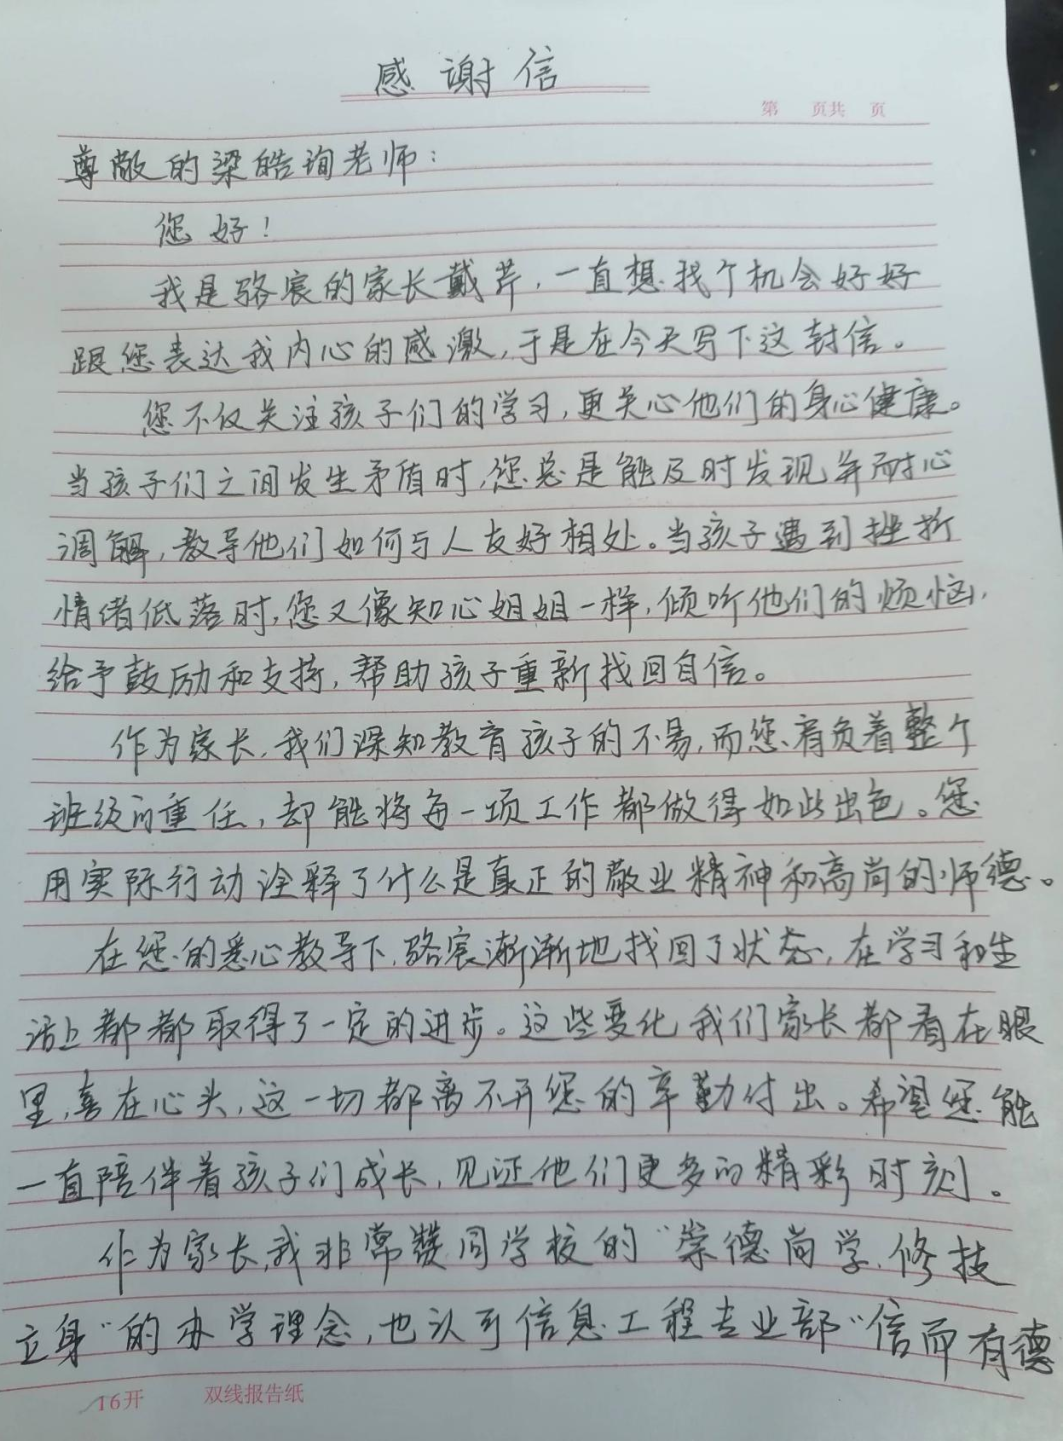 感谢信
第 页共 页
尊敬的梁皓珣老师：
您好！
我是骆宸的家长戴芹，一直想找个机会好好
跟您表达我内心的感激，于是在今天写下这封信。
您不仅关注孩子们的学习，更关心他们的身心健康。
当孩子们之间发生矛盾时，您总是能及时发现并耐心
调解，教导他们如何与人友好相处。当孩子遇到挫折
情绪低落时，您又像知心姐姐一样，倾听他们的烦恼，
给予鼓励和支持，帮助孩子重新找回自信。
作为家长，我们深知教育孩子的不易，而您肩负着整个
班级的重任，却能将每一项工作都做得如此出色。您
用实际行动诠释了什么是真正的敬业精神和高尚的师德。
在您的悉心教导下，骆宸渐渐地找回了状态，在学习和生
活上都都取得了一定的进步。这些变化我们家长都看在眼
里，喜在心头，这一切都离不开您的辛勤付出。希望您能
一直陪伴着孩子们成长，见证他们更多的精彩时刻。
作为家长，我非常赞同学校的“崇德尚学，修技
立身”的办学理念，也认可信息工程专业部“信而有德
16开 双线报告纸